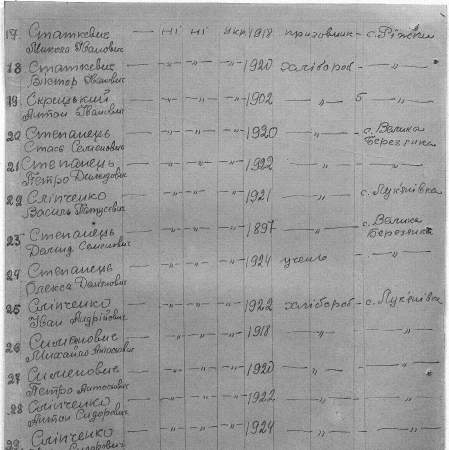 17 Статкевис — ні ні укр 1918 призовник — с. Ріжки
Микола Іванович
18 Статкевис — " — " — " — 1920 хлібороб — " —
Віктор Іванович
19 Скрицький — " — " — " — 1902 — " — б — " —
Антон Іванович
20 Степанець — " — " — " — 1920 — " — с. Велика
Стась Семенович Березянка
21 Степанець — " — " — " — 1922 — " — " —
Петро Демидович
22 Сліпченко — " — " — " — 1921 — " — с. Лук'янівка
Василь
23 Степанець — " — " — " — 1897 — " — с. Велика
Демид Семенович Березянка
24 Степанець — " — " — " — 1924 учень — " —
Олекса
25 Сліпченко — " — " — " — 1922 хлібороб — с. Лук'янівка
Іван Андрійович
26 Сименовис — " — " — " — 1918 — " — " —
Михайло Антонович
27 Сименовис — " — " — " — 1920 — " — " —
Петро Антонович
28 Сліпченко — " — " — " — 1922 — " — " —
Антон Сидорович
29 Сліпченко — " — " — " — 1924 — " — " —
Сидорович